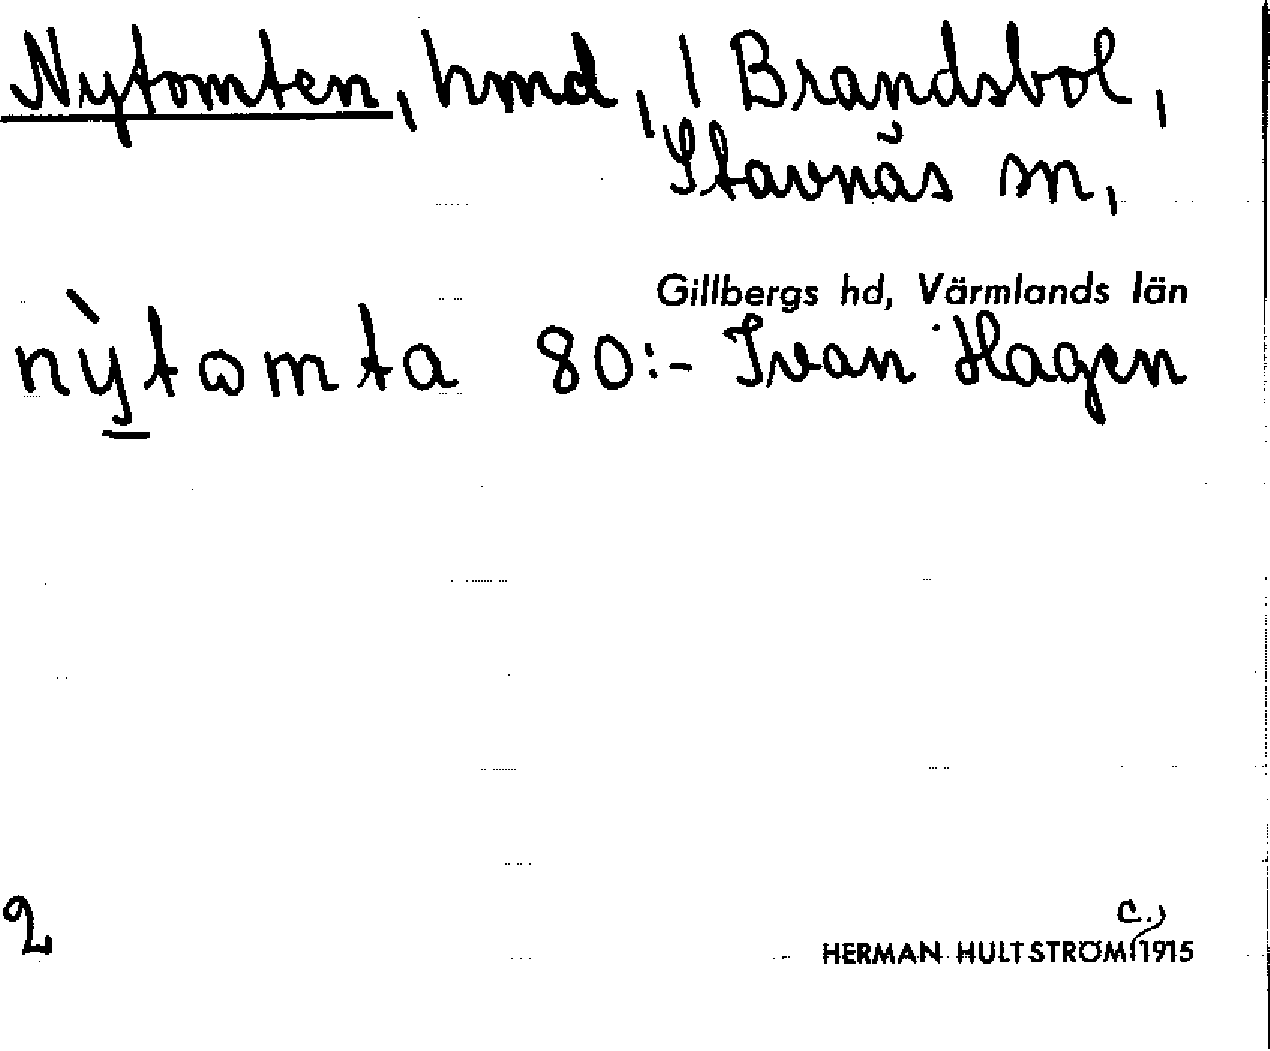 Nytomten, hmd, 1 Brandsbol,
Stavnäs sn,
Gillbergs hd, Värmlands län
nỳtωmta 80:- Ivan Hagen
2
c.)
HERMAN HULTSTRÖM 1915